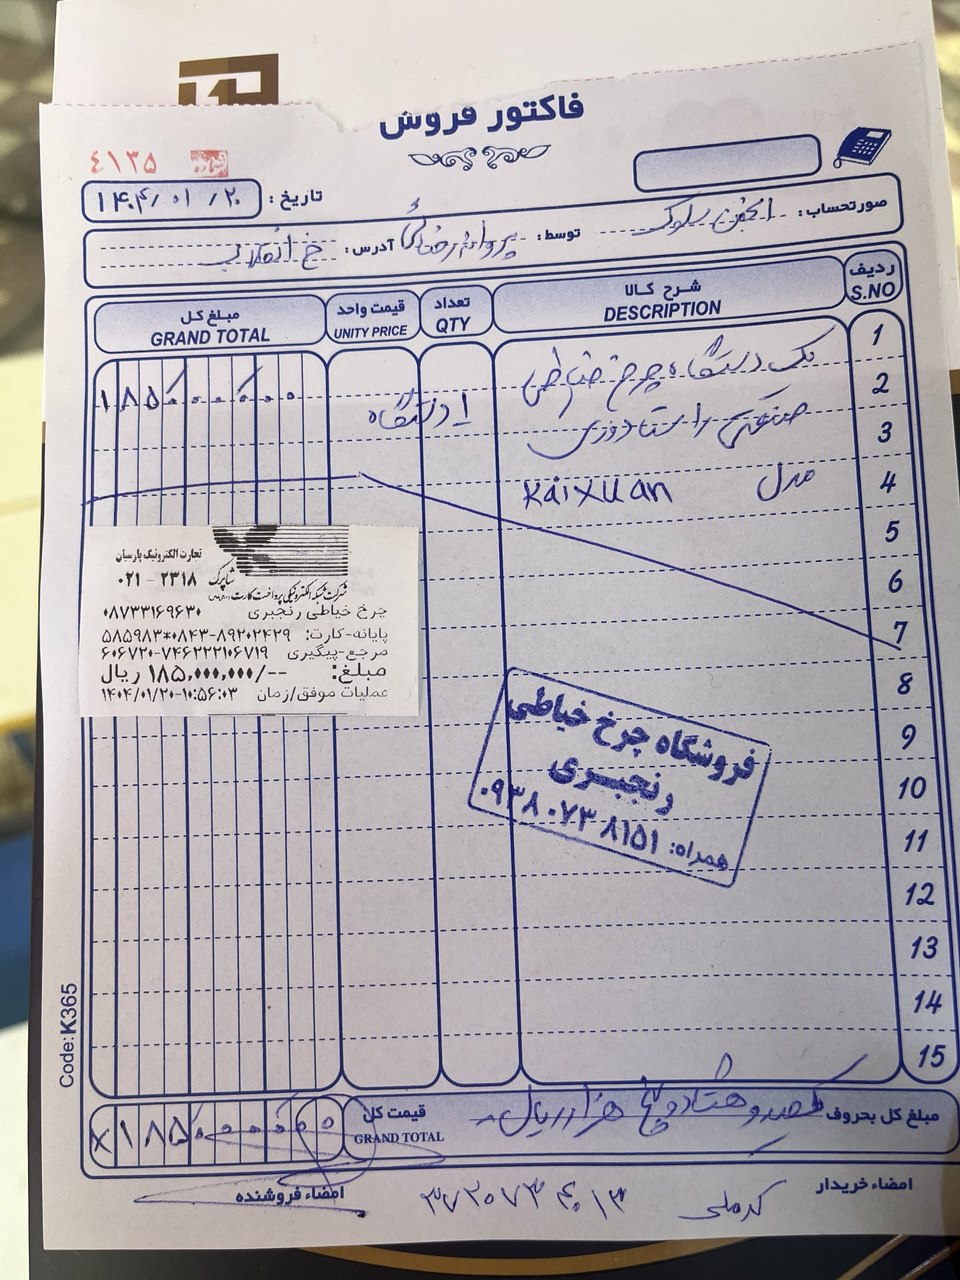 فاکتور فروش
شماره ٤١٣٥
تاریخ : ۱۴۰۴/۰۱/۲۰
صورتحساب: انجمن سلوک توسط: پروانه رضائی آدرس: خ انقلاب
ردیف شرح کالا تعداد قیمت واحد مبلغ کل
S.NO DESCRIPTION QTY UNITY PRICE GRAND TOTAL
1 یک دستگاه چرخ خیاطی
2 صنعتی راسته دوزی ۱ دستگاه ۱۸۵۰۰۰۰۰۰
3
4 مدل Kaixuan
5
6
7
8
9
10
11
12
13
14
15
تجارت الکترونیک پارسیان
شاپرک ۲۳۱۸ - ۰۲۱
شرکت شبکه الکترونیکی پرداخت کارت
چرخ خیاطی رنجبری ۰۸۷۳۳۱۶۹۶۳۰
پایانه-کارت: ۵۸۵۹۸۳*۰۸۴۳-۸۹۲۰۲۴۲۹
مرجع-پیگیری ۶۰۶۷۲۰-۷۴۶۲۲۲۱۰۶۷۱۹
مبلغ: --/۱۸۵,۰۰۰,۰۰۰ ریال
عملیات موفق/زمان ۱۴۰۴/۰۱/۲۰-۱۰:۵۶:۰۳
فروشگاه چرخ خیاطی
رنجبری
همراه: ۰۹۳۸ ۰۷۳ ۸۱۵۱
Code:K365
مبلغ کل بحروف یکصد و هشتاد و پنج هزار ریال قیمت کل ×۱۸۵۰۰۰۰۰۰
GRAND TOTAL
امضاء خریدار کد ملی ۳۷۳۰۷۳۴۰۱۳ امضاء فروشنده